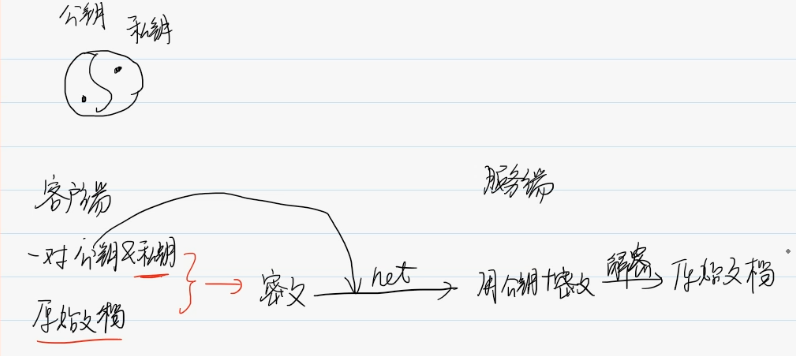 公钥 私钥
客户端
服务端
一对 公钥&私钥
原始文档
密文
net
用公钥+密文
解密
原始文档